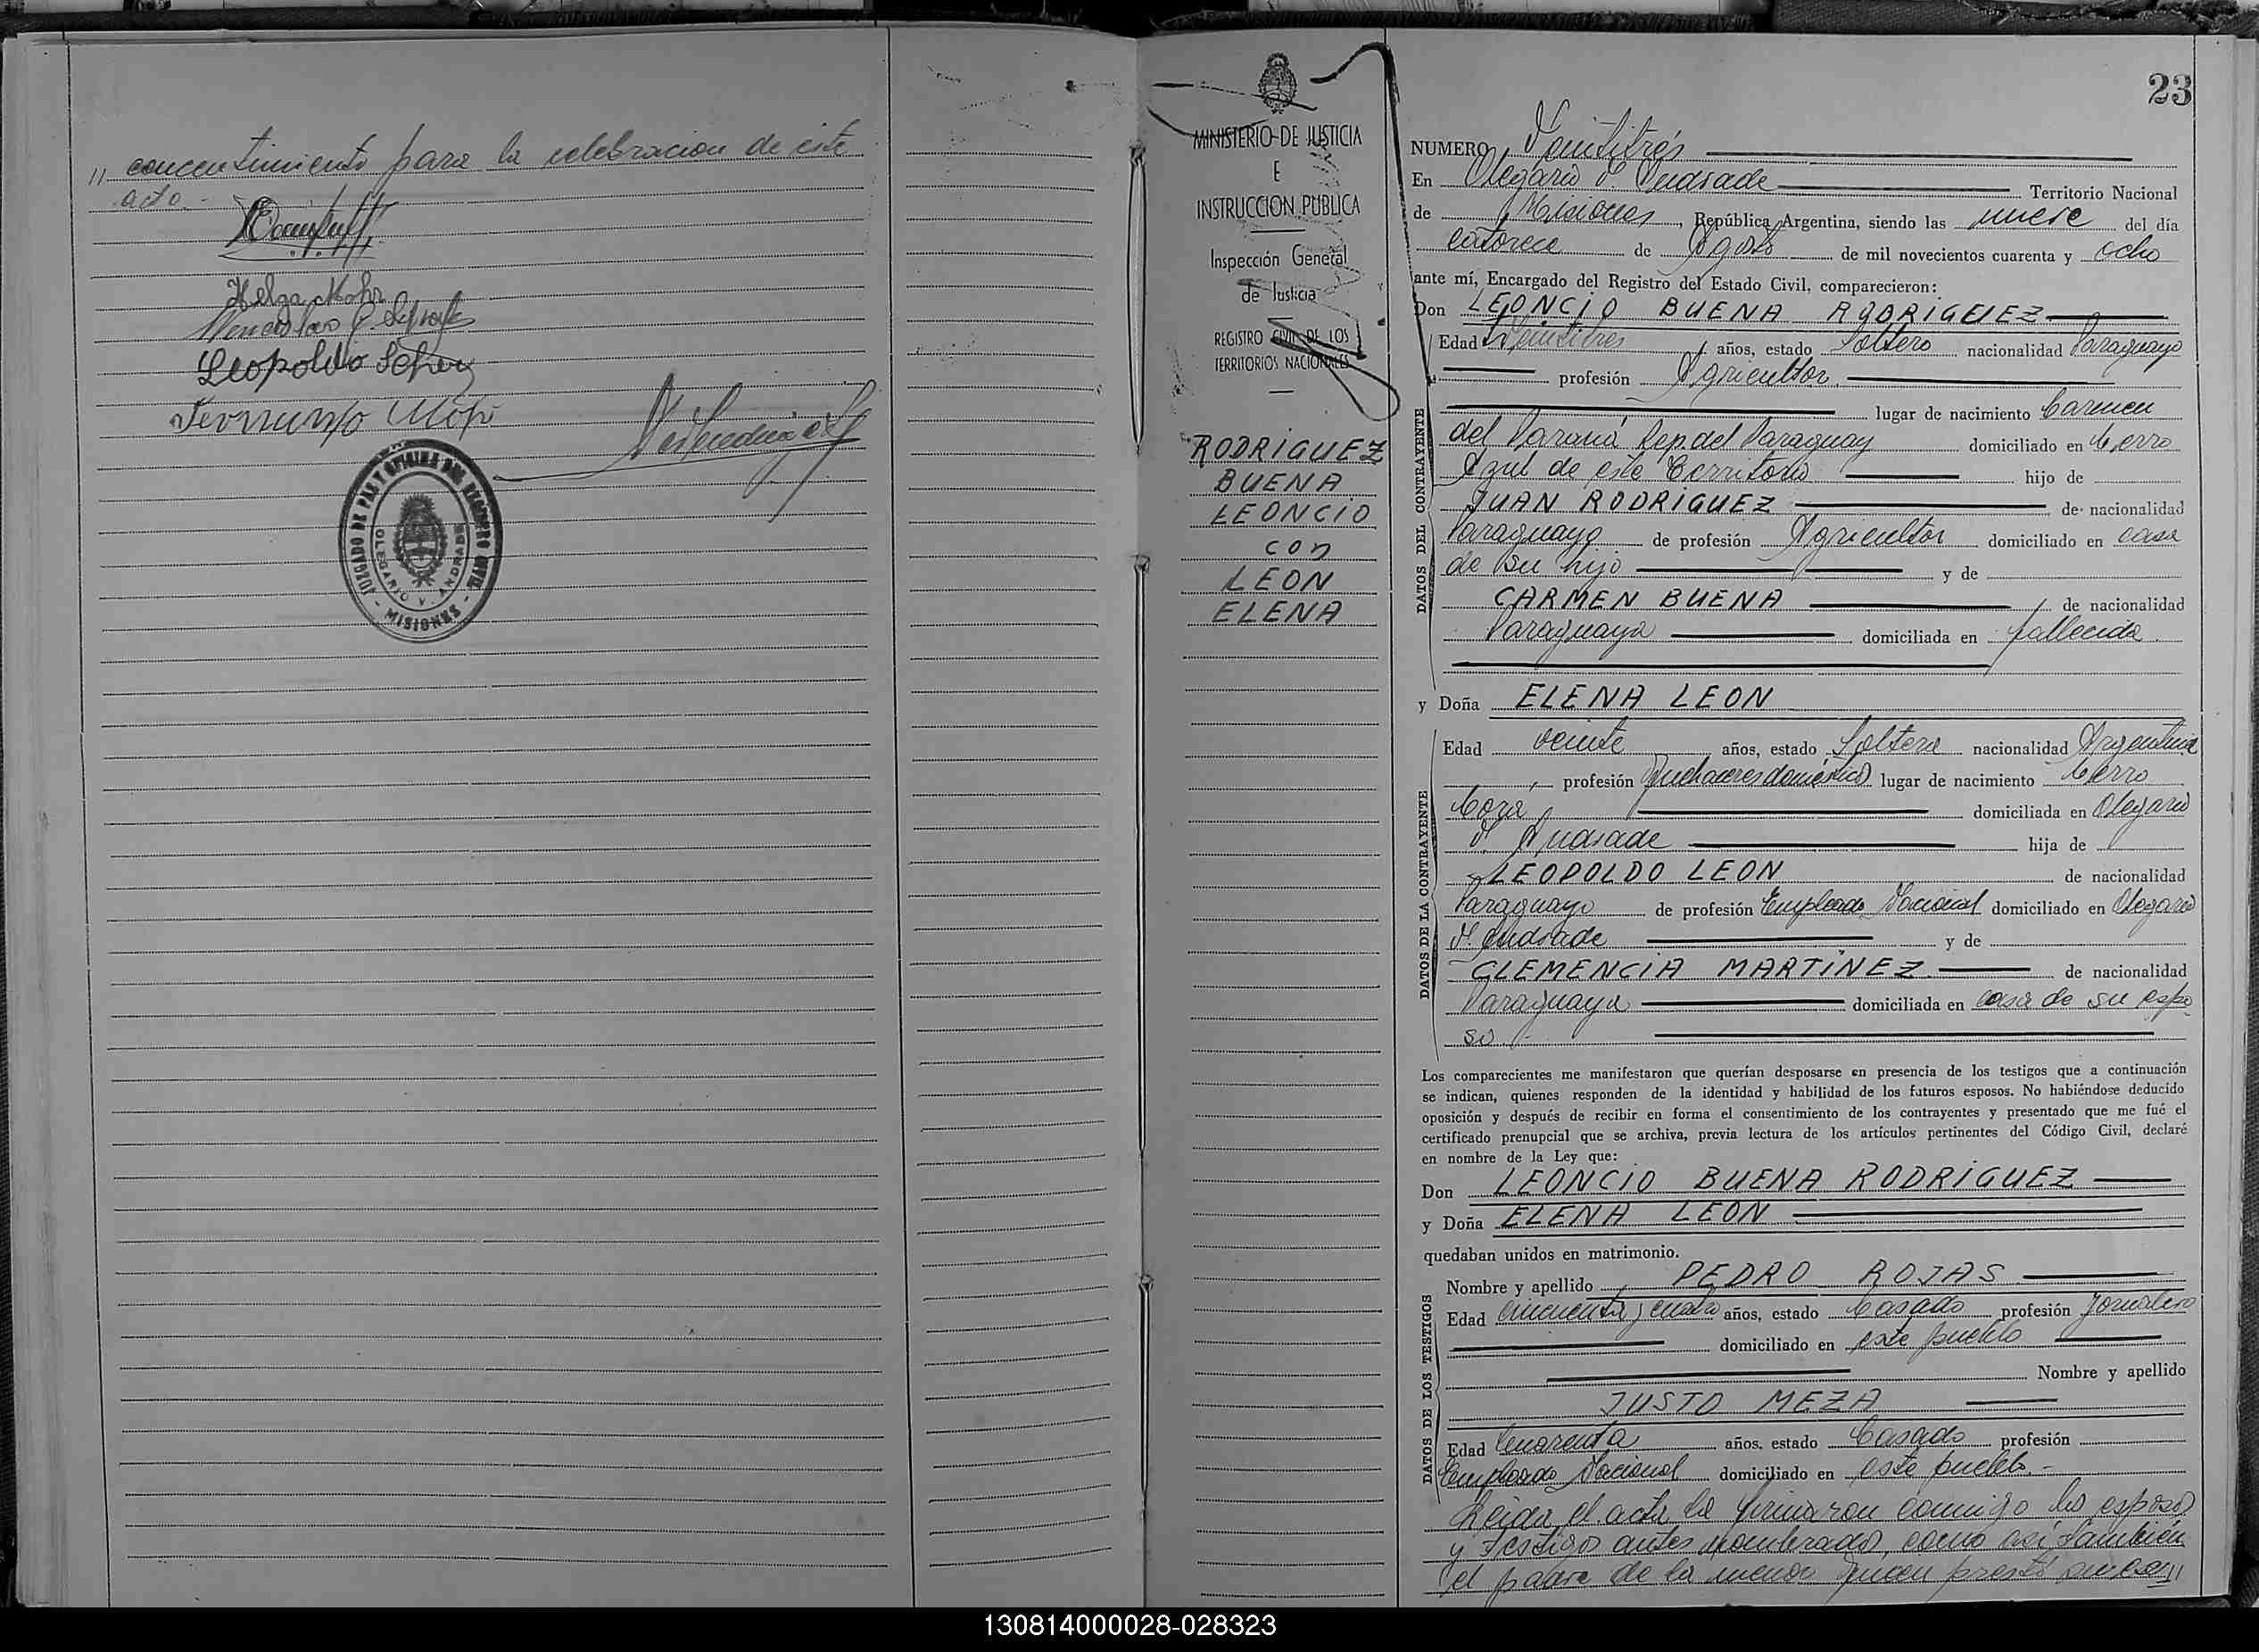 " concentimiento para la celebracion de este
acto.-
Helga Mohr
Leopoldo Scher
JUZGADO DE PAZ Y OFICINA DEL REGISTRO CIVIL
OLEGARIO V. ANDRADE
- MISIONES -
MINISTERIO DE JUSTICIA
E
INSTRUCCION PUBLICA
Inspección General
de Justicia
REGISTRO CIVIL DE LOS
TERRITORIOS NACIONALES
RODRIGUEZ
BUENA
LEONCIO
con
LEON
ELENA
23
NUMERO Veintitrés
En Olegario V. Andrade Territorio Nacional
de Misiones, República Argentina, siendo las nueve del día
catorce de Agosto de mil novecientos cuarenta y ocho
ante mí, Encargado del Registro del Estado Civil, comparecieron:
Don LEONCIO BUENA RODRIGUEZ
DATOS DEL CONTRAYENTE
Edad Veintitres años, estado Soltero nacionalidad Paraguayo
profesión Agricultor
lugar de nacimiento Carmen
del Paraná Rep. del Paraguay domiciliado en Cerro
Azul de este Territorio hijo de
JUAN RODRIGUEZ de nacionalidad
Paraguayo de profesión Agricultor domiciliado en casa
de su hijo y de
CARMEN BUENA de nacionalidad
Paraguaya domiciliada en fallecida.
y Doña ELENA LEON
DATOS DE LA CONTRAYENTE
Edad veinte años, estado Soltera nacionalidad Argentina
, profesión Quehaceres domésticos lugar de nacimiento Cerro
Corá domiciliada en Olegario
V. Andrade hija de
LEOPOLDO LEON de nacionalidad
Paraguayo de profesión Empleado Nacional domiciliado en Olegario
V. Andrade y de
CLEMENCIA MARTÍNEZ. de nacionalidad
Paraguaya domiciliada en casa de su espo
so.-
Los comparecientes me manifestaron que querían desposarse en presencia de los testigos que a continuación
se indican, quienes responden de la identidad y habilidad de los futuros esposos. No habiéndose deducido
oposición y después de recibir en forma el consentimiento de los contrayentes y presentado que me fué el
certificado prenupcial que se archiva, previa lectura de los artículos pertinentes del Código Civil, declaré
en nombre de la Ley que:
Don LEONCIO BUENA RODRÍGUEZ
y Doña ELENA LEON
quedaban unidos en matrimonio.
DATOS DE LOS TESTIGOS
Nombre y apellido PEDRO ROJAS
Edad cincuenta y cuatro años, estado Casado profesión Jornalero
domiciliado en este pueblo
Nombre y apellido
JUSTO MEZA
Edad Cuarenta años, estado Casado profesión
Empleado Nacional domiciliado en este pueblo.-
Leida el acta la firmaron conmigo los esposos
y testigos antes nombrados, como así también
el padre de la menor quien prestó su con"
130814000028-028323